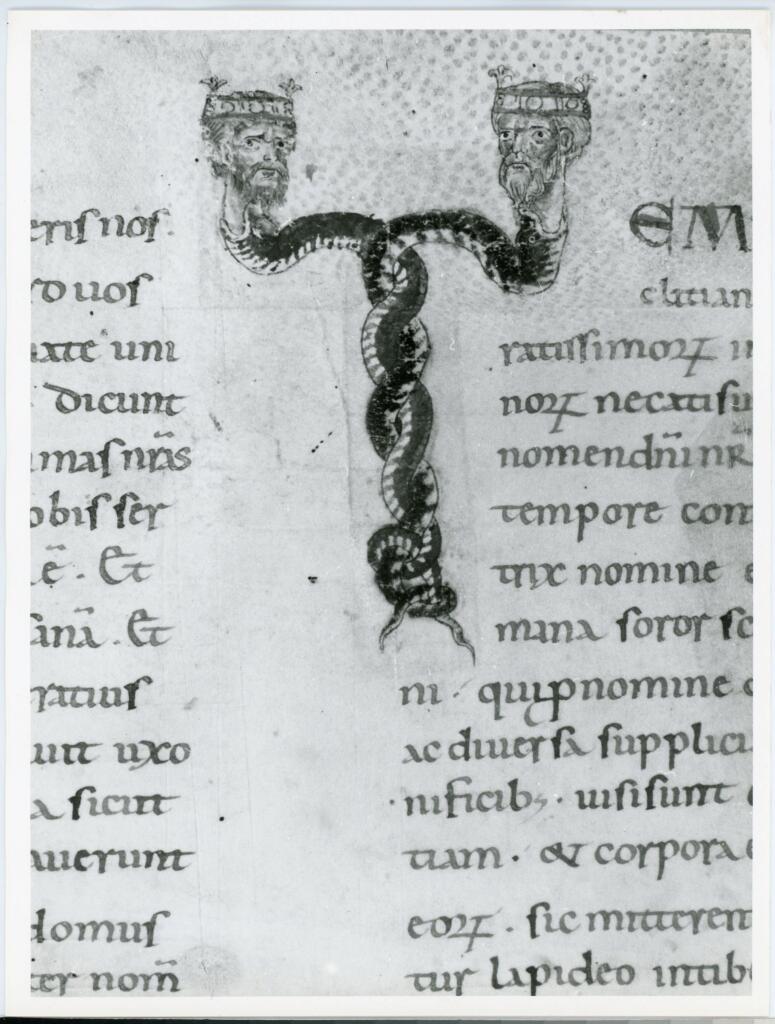 eris nos.
duos
uni
dicunt
mas nr̄as
obis ser
ē. Et
anā. Et
ratius
uxo
a sicut
auerunt
domus
ter nom̄
TEM
cletian
ratissimoꝝ
noꝝ necatisu
nomen dn̄i nr
tempore com
trix nomine
mana soror
ni. qui nomine
ac diuersa supplici
nificib; uisi sunt
tiam. & corpora
eoꝝ. sic mitteren
tur lapideo